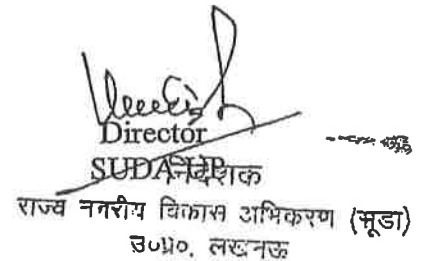 Director
SUDA-UP निदेशक
राज्य नगरीय विकास अभिकरण (सूडा)
उ०प्र०, लखनऊ